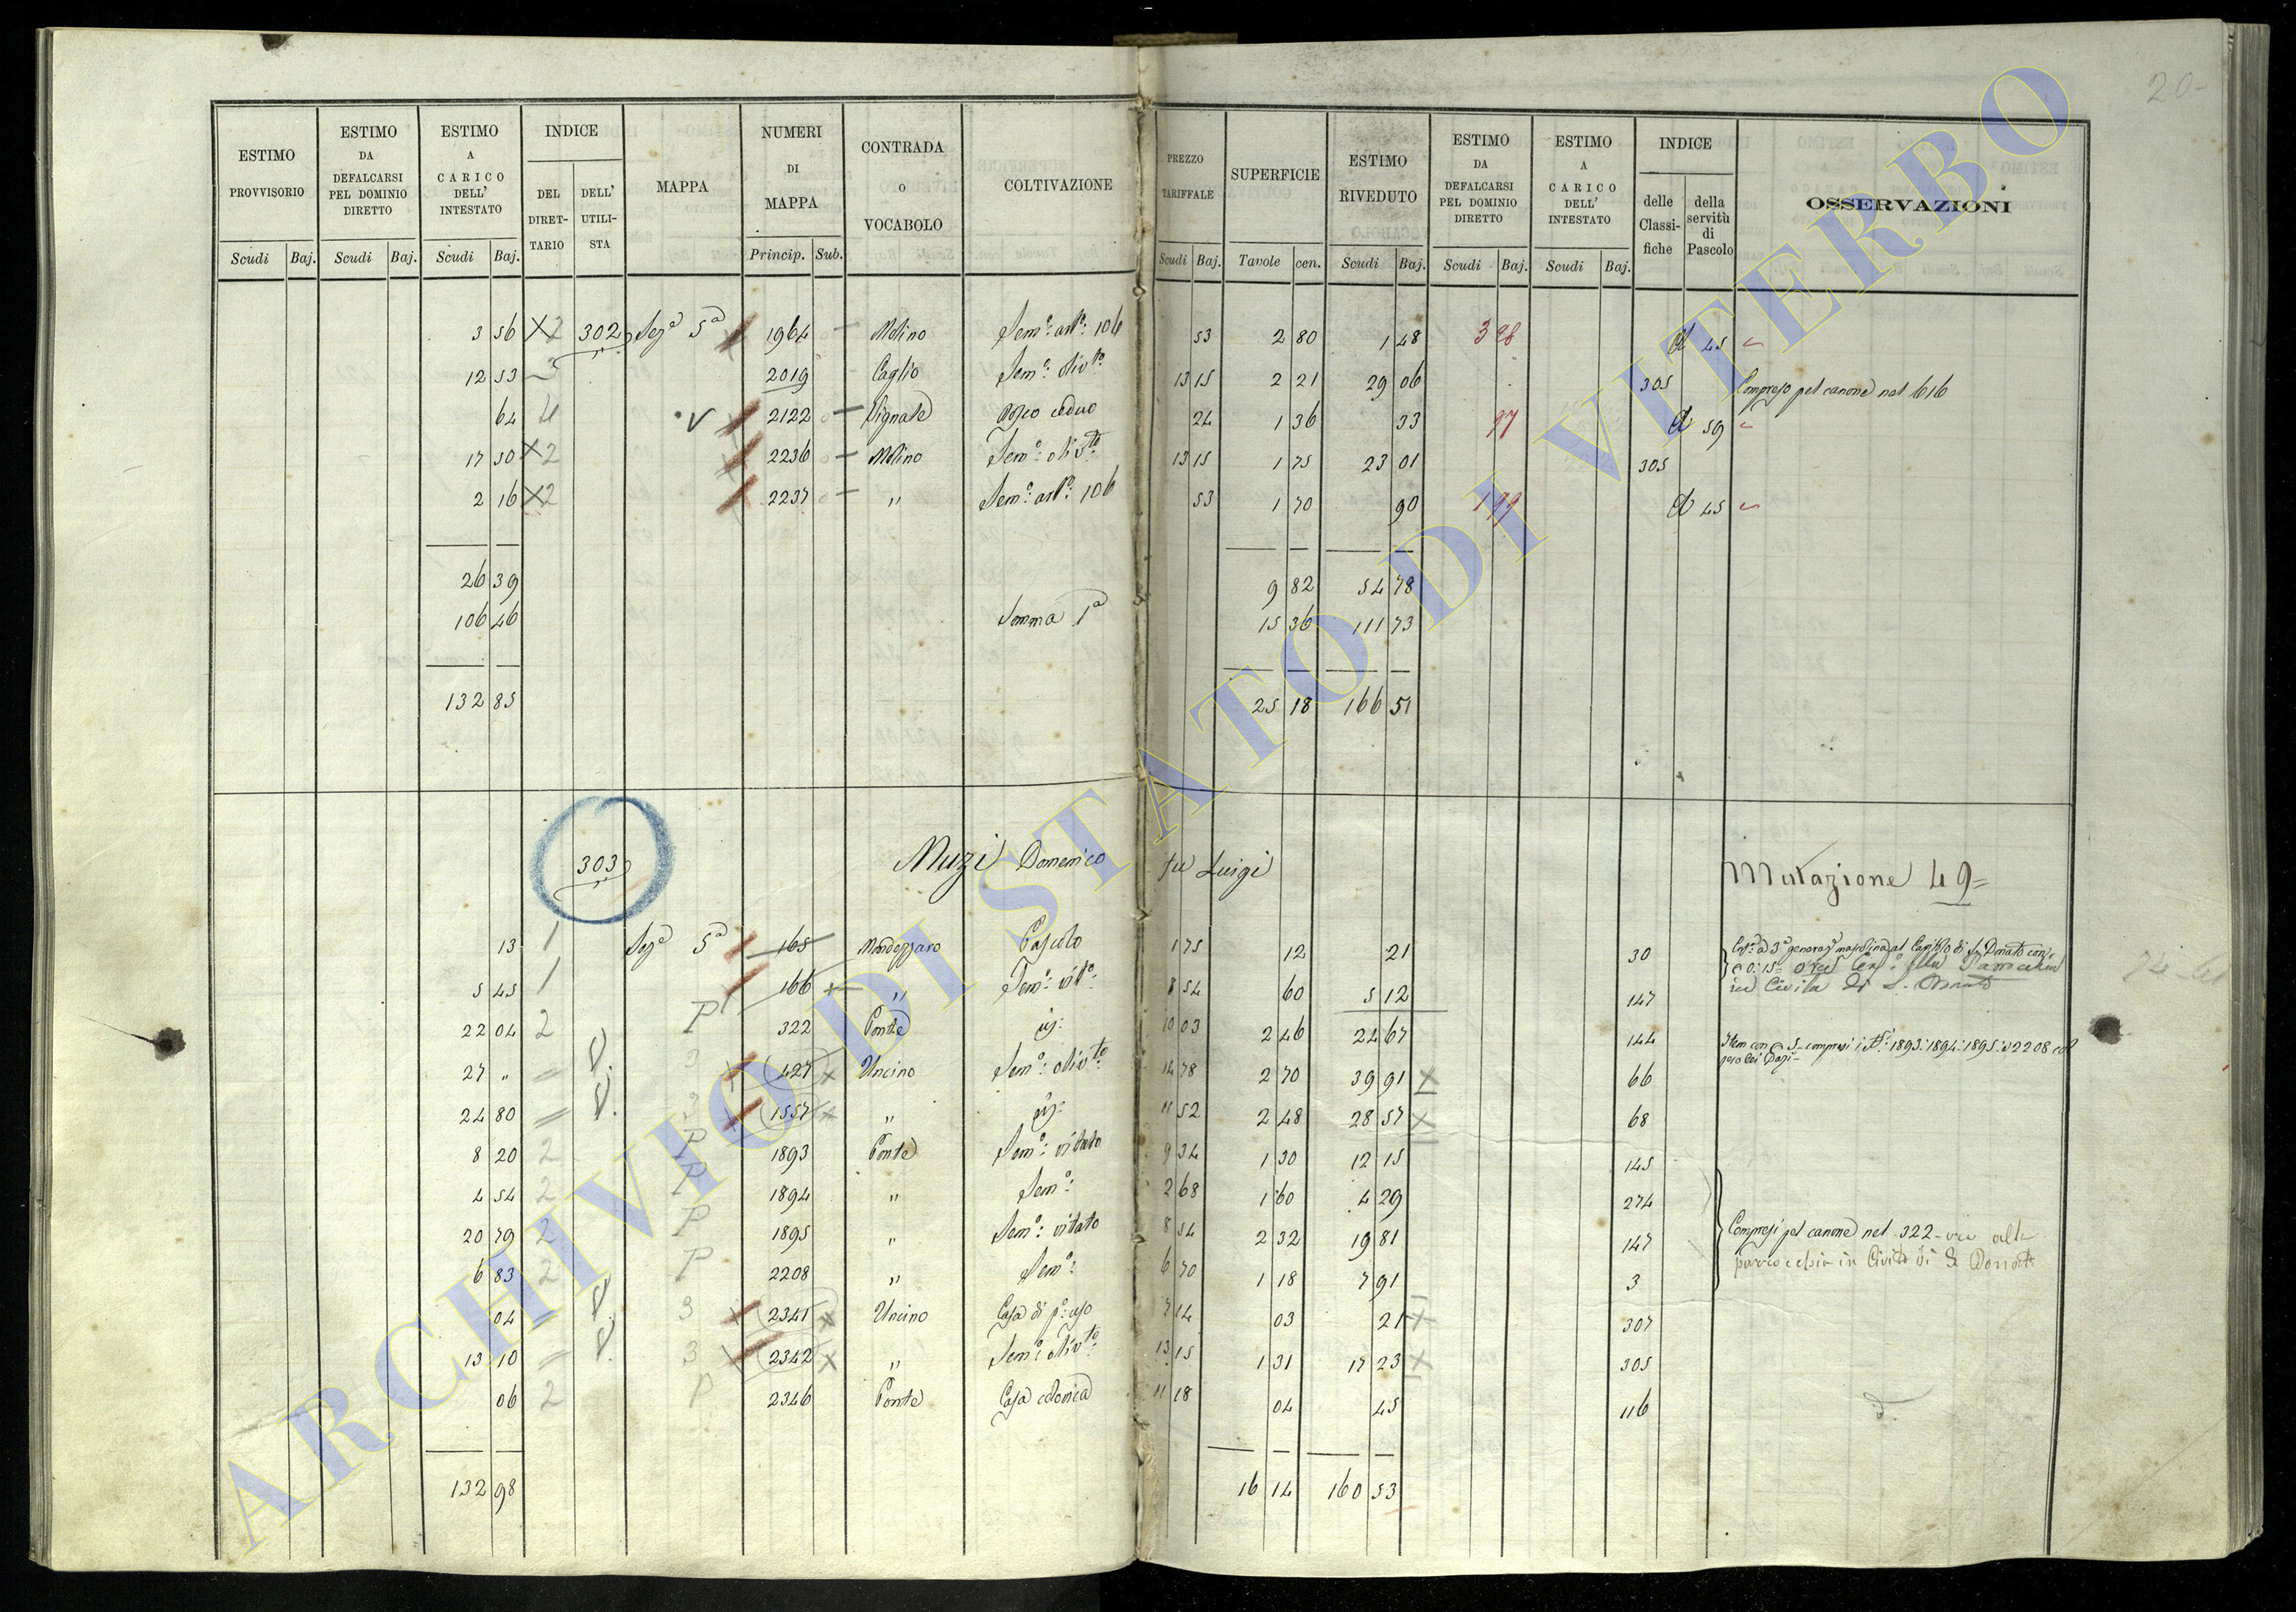 20-
ESTIMO PROVVISORIO Scudi Baj.
ESTIMO DA DEFALCARSI PEL DOMINIO DIRETTO Scudi Baj.
ESTIMO A CARICO DELL' INTESTATO Scudi Baj.
INDICE DEL DIRETTARIO DELL' UTILISTA
MAPPA
NUMERI DI MAPPA Princip. Sub.
CONTRADA O VOCABOLO
COLTIVAZIONE
PREZZO TARIFFALE Scudi Baj.
SUPERFICIE Tavole cen.
ESTIMO RIVEDUTO Scudi Baj.
ESTIMO DA DEFALCARSI PEL DOMINIO DIRETTO Scudi Baj.
ESTIMO A CARICO DELL' INTESTATO Scudi Baj.
INDICE delle Classifiche della servitù di Pascolo
OSSERVAZIONI
3 56 X2 302 Sez.e 5a 1964 Molino Sem.o 106 53 2 80 1 48 3 98 d 45
12 53 3 2019 Caglio Sem.o oliv.to 13 15 2 21 29 06 305 Compreso pel canone nel 1616
64 4 V 2122 Vignale Bosco ceduo 24 1 36 33 97 d 59
17 50 X2 2236 Molino Sem.o oliv.to 13 15 1 75 23 01 305
2 16 X2 2237 " Sem.o 106 53 1 70 90 1 99 d 45
26 39 9 82 54 78
106 46 Somma 1a 15 36 111 73
132 85 25 18 166 51
303 Muzi Domenico fu Luigi Mutazione 49=
13 1 Sez.e 5a 165 Pascolo 1 75 12 21 30
5 45 1 166 " Sem.o vit.o 8 54 60 5 12 147
in Civita di S. Donato
22 04 2 P 322 Ponte 10 03 2 46 24 67 144
27 " = V. 3 427 Uncino Sem.o oliv.to 14 78 2 70 39 91 X 66
24 80 = V. 3 1557 " 11 52 2 48 28 57 X 68
8 20 2 P 1893 Ponte Sem.o vitato 9 34 1 30 12 15 145
4 54 2 P 1894 " Sem.o 2 68 1 60 4 29 274
20 79 2 P 1895 " Sem.o vitato 8 54 2 32 19 81 147
Compresi pel canone nel 322
parrocchia in Civita di S. Donato
6 83 2 P 2208 " Sem.o 6 70 1 18 7 91 3
04 = V. 3 2341 Uncino Casa di p.o uso 7 14 03 21 X 307
13 10 = V. 3 2342 " Sem.o oliv.to 13 15 1 31 17 23 X 305
06 2 P 2346 Ponte Casa colonica 11 18 04 45 116
132 98 16 14 160 53
ARCHIVIO DI STATO DI VITERBO